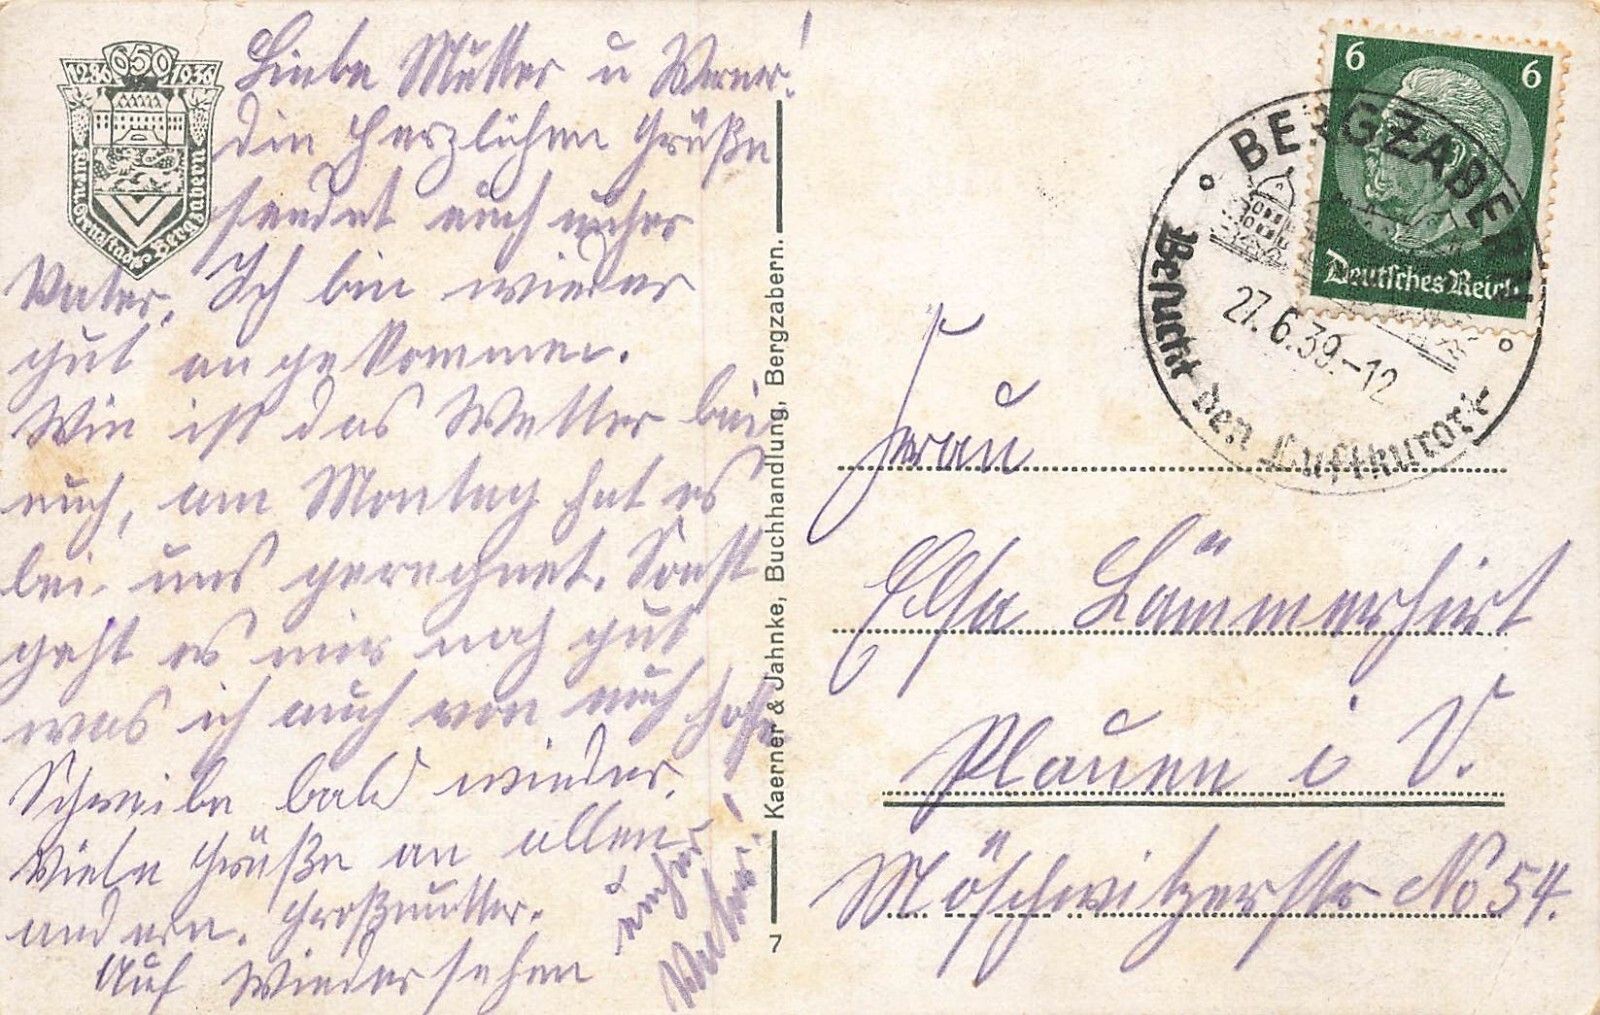 1286 650 1936
Bergzabern
Liebe Mutter u Werner!
die herzlichen Grüße
sendet euch euer
Vater. Ich bin wieder
gut angekommen.
Wie ist das Wetter bei
euch, am Montag hat es
bei uns geregnet. Sonst
geht es mir noch gut
was ich auch von euch hoffe
Schreibe bald wieder.
Viele Grüße an allen
andern. Großmutter.
Auf Wiedersehen
euer
Vater!
Kaerner & Jahnke, Buchhandlung, Bergzabern.
7
6 6
Deutsches Reich
BERGZABERN
27.6.39.-12
Besucht den Luftkurort
Frau
Elsa Lämmerhirt
Plauen i V.
Möschwitzerstr No 54.